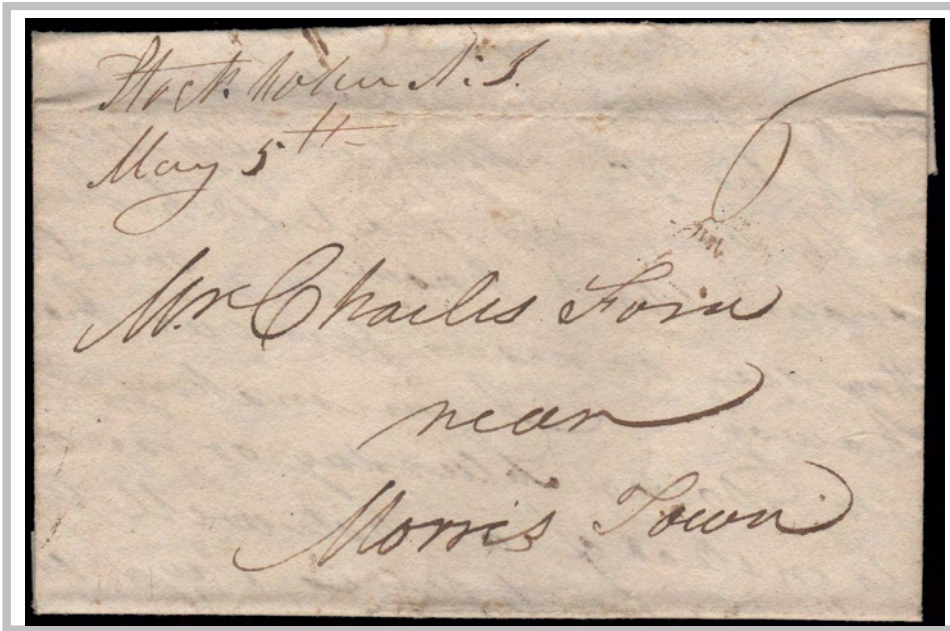 Stockholm N.J.
May 5th
6
Mr Charles Ford
near
Morris Town